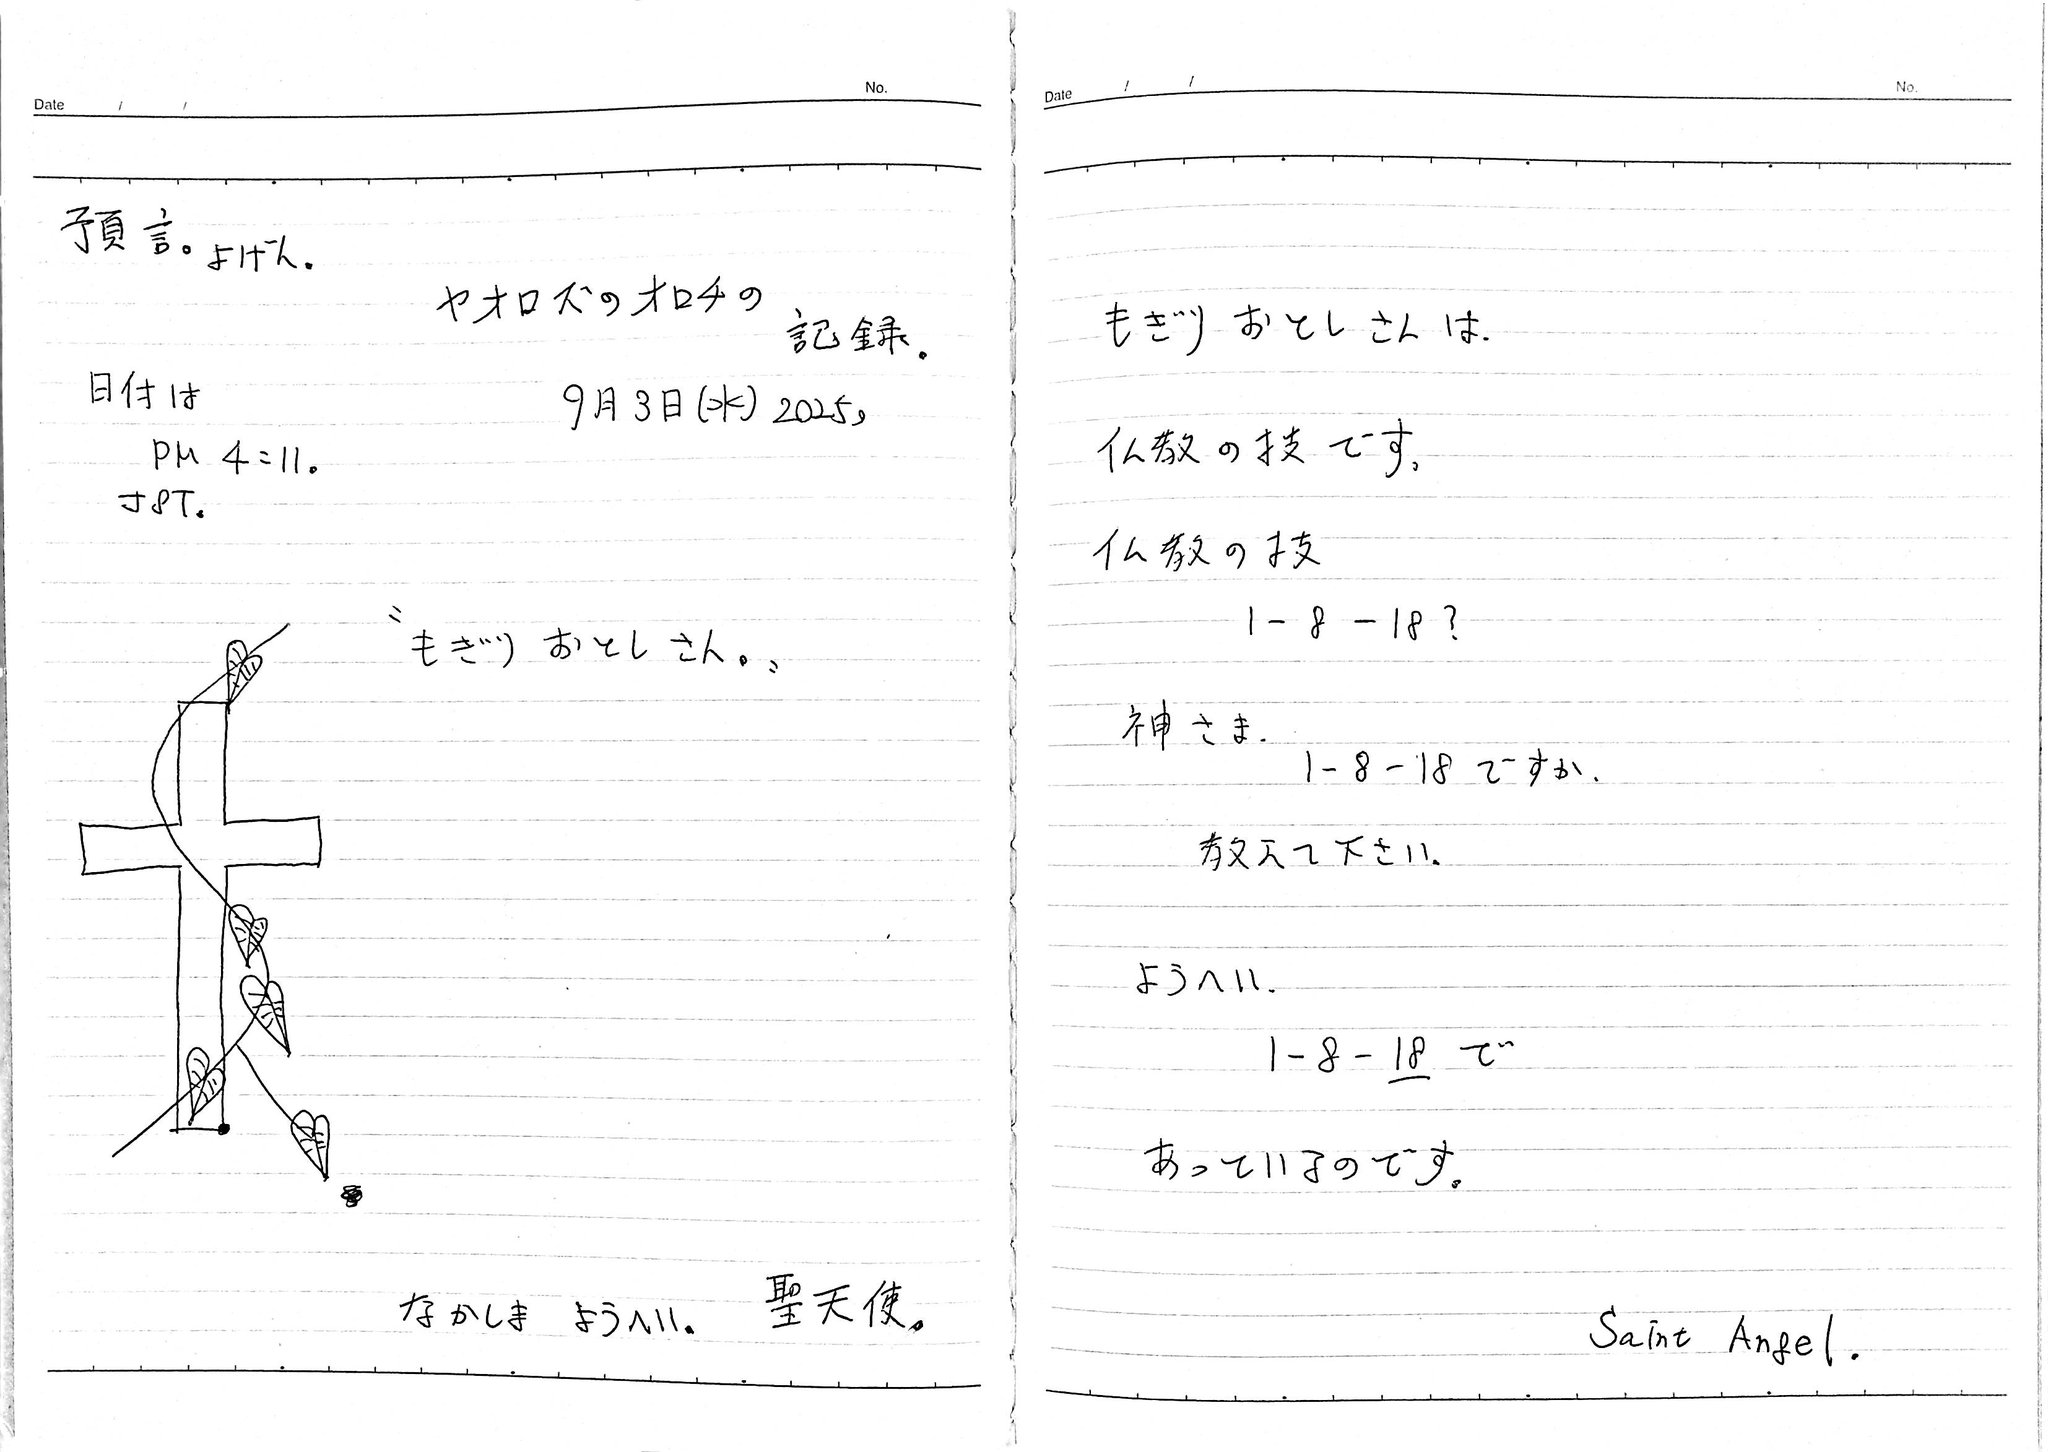 Date / /
No.
預言。よげん。
ヤオロズのオロチの
記録.
日付は
9月3日(水) 2025,
PM 4:11.
"もぎり おとしさん。"
なかしま ようへい. 聖天使。
Date / /
No.
もぎり おとしさんは.
仏教の技です。
仏教の技
1-8-18?
神さま.
1-8-18ですか.
教えて下さい.
ようへい.
1-8-18で
あっているのです。
Saint Angel.